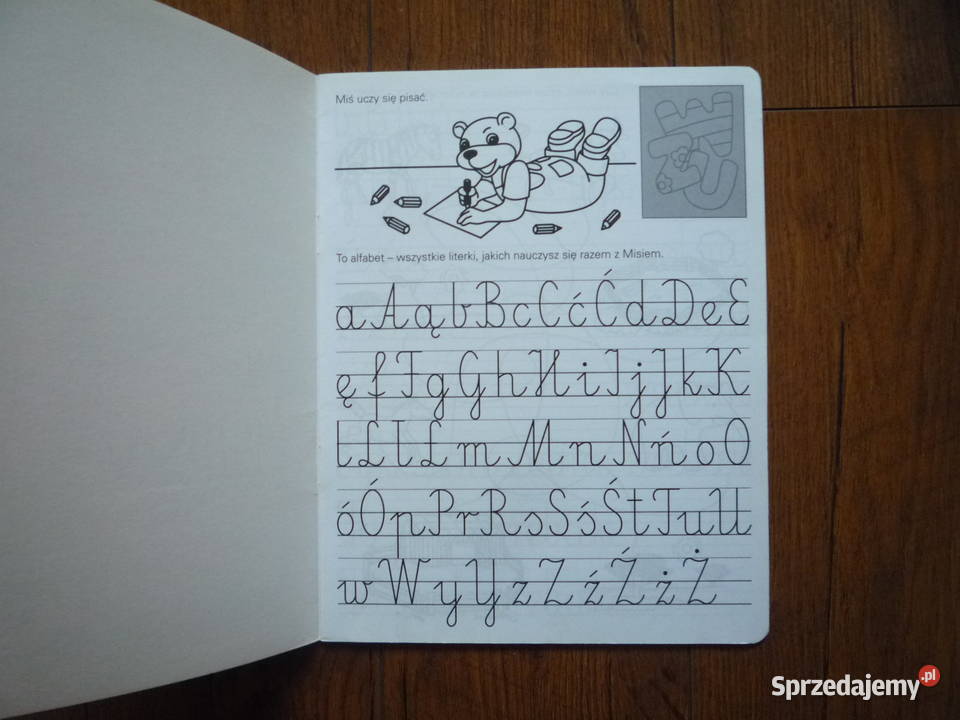 Miś uczy się pisać.
To alfabet – wszystkie literki, jakich nauczysz się razem z Misiem.
a A ą b B c C ć Ć d D e E
ę f F g G h H i I j J k K
l L ł Ł m M n N ń o O
ó Ó p P r R s S ś Ś t T u U
w W y Y z Z ź Ź ż Ż
Sprzedajemy.pl